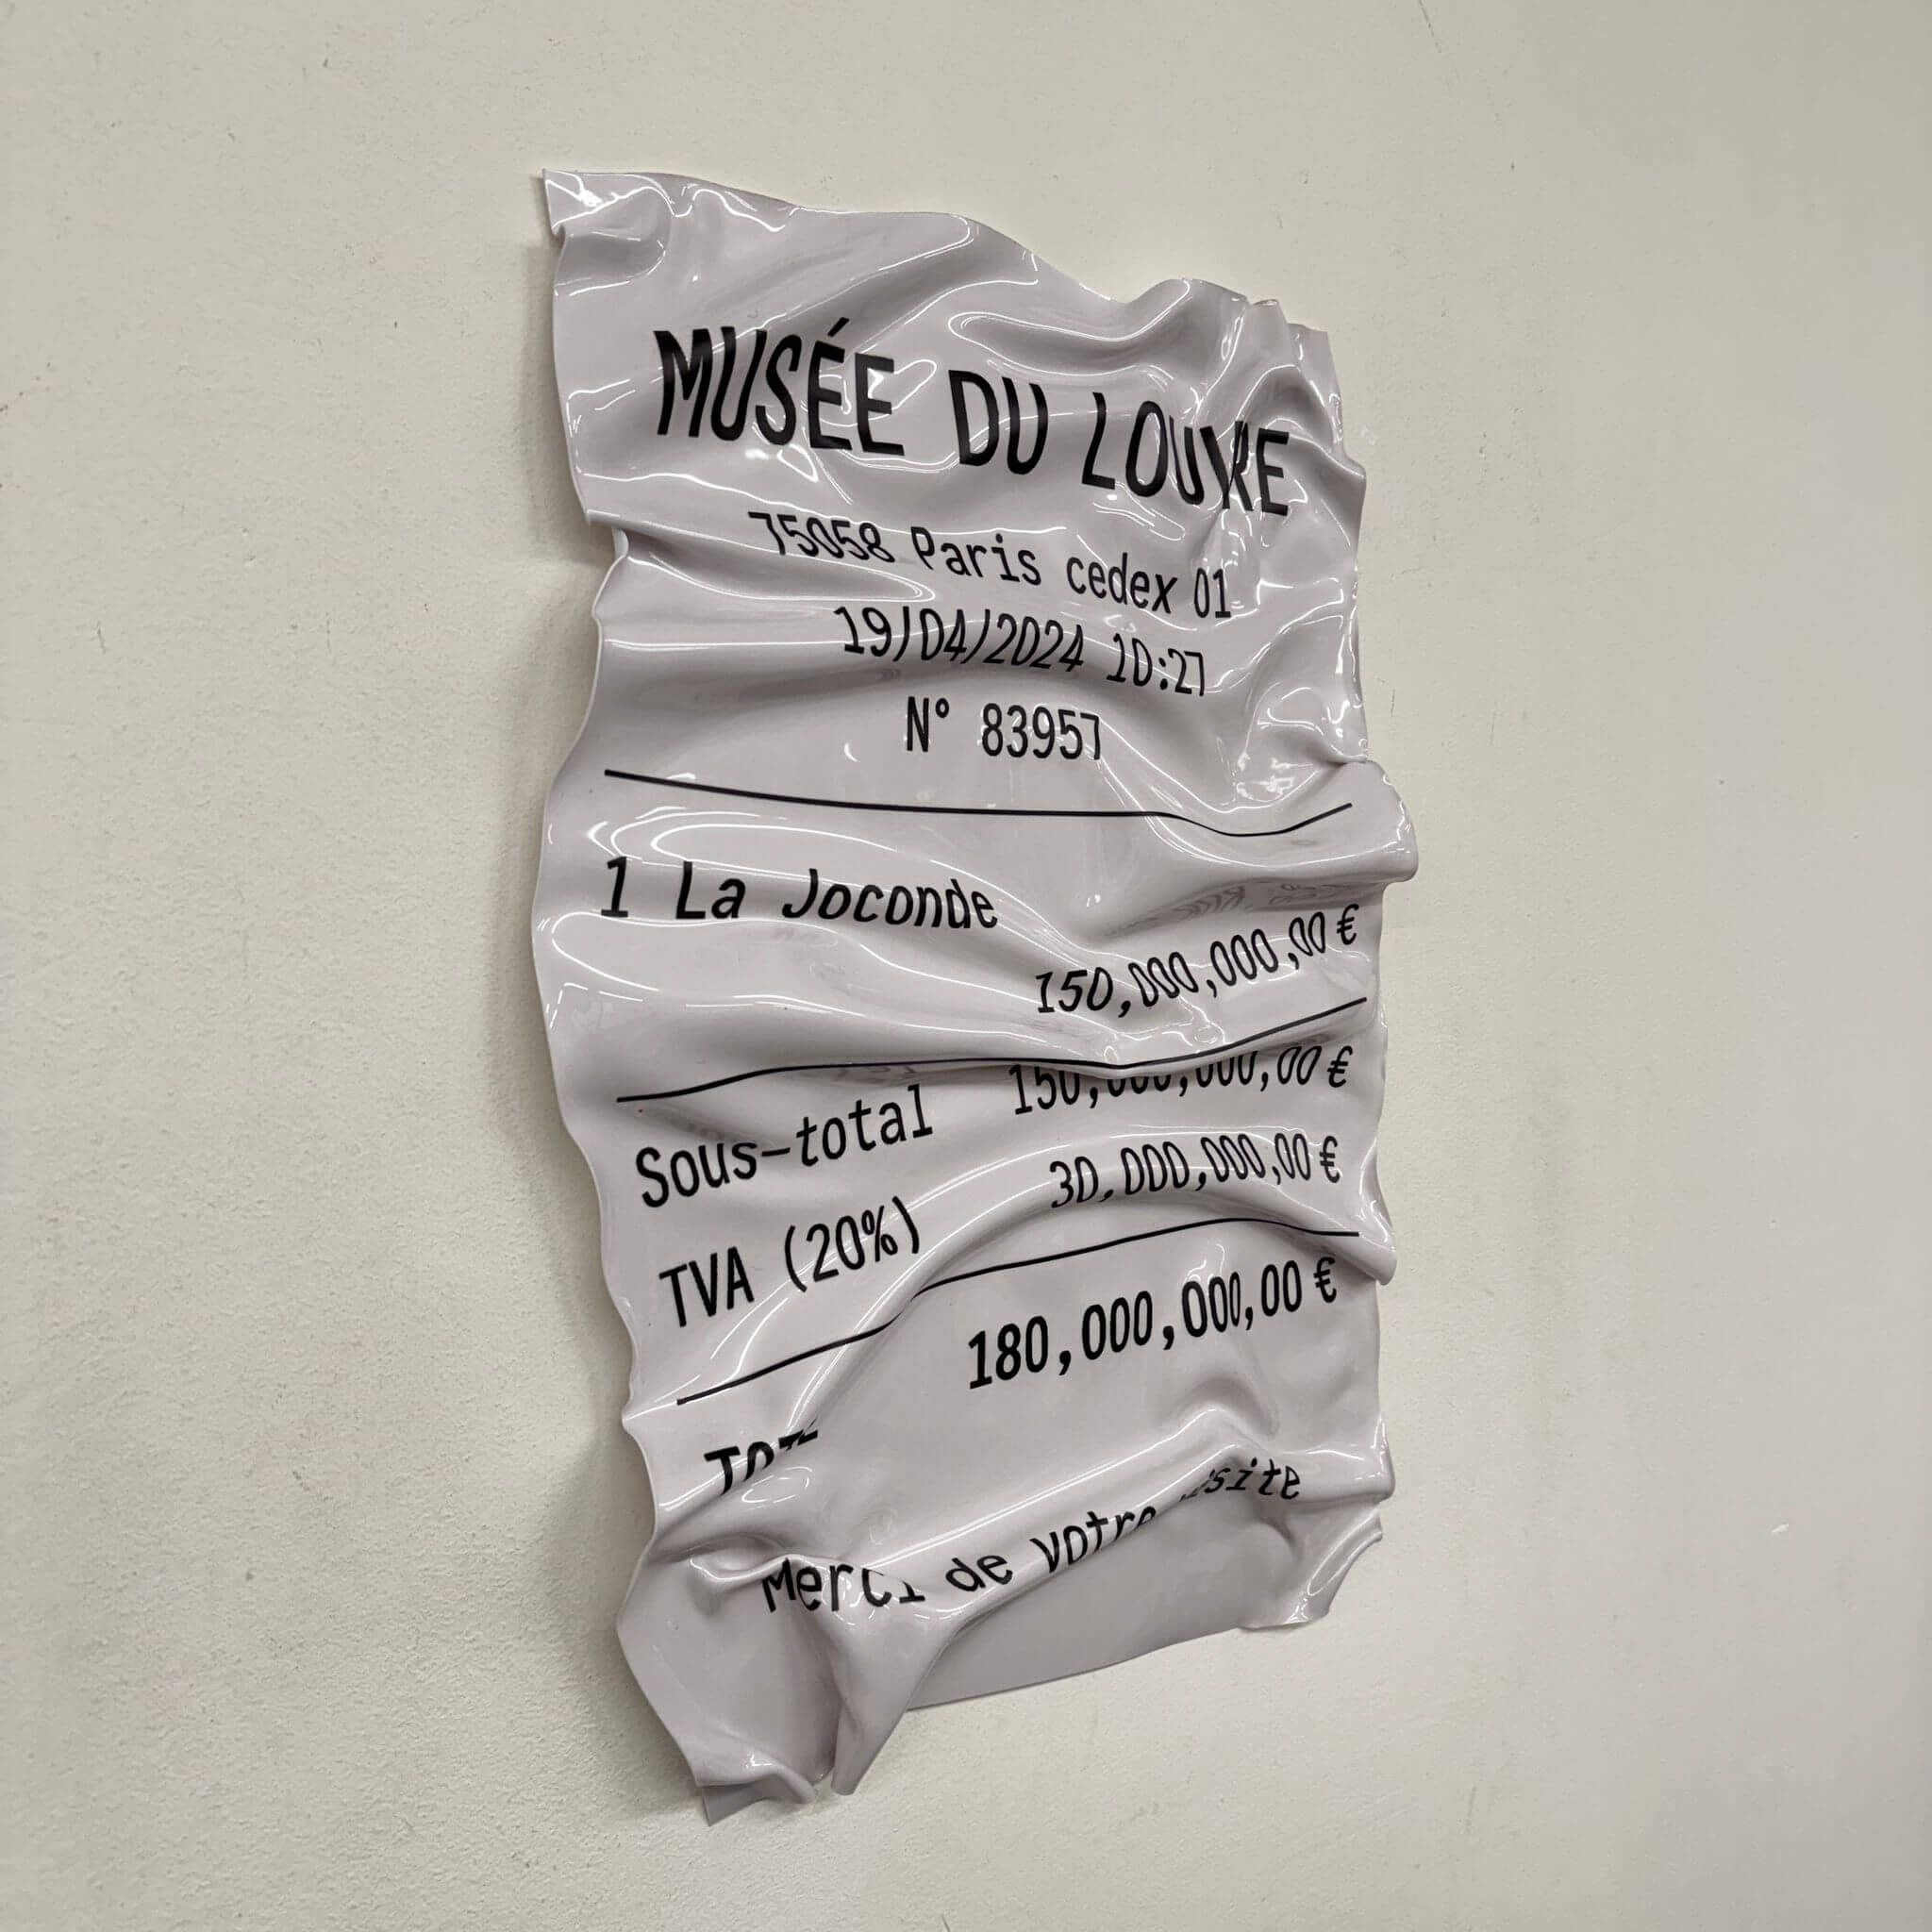 MUSÉE DU LOUVRE
75058 Paris cedex 01
19/04/2024 10:27
N° 83957
1 La Joconde
150,000,000,00 €
Sous-total 150,000,000,00 €
TVA (20%) 30,000,000,00 €
180,000,000,00 €
Merci de votre visite